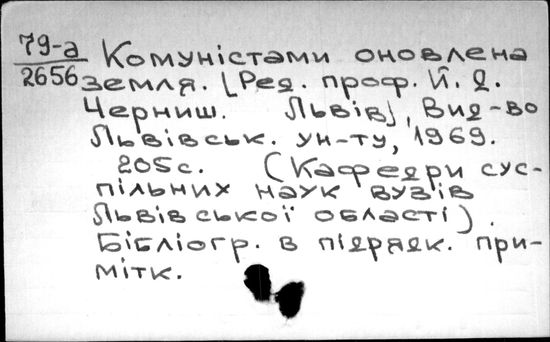 79-а Комуністами оновлена
2656 земля. [Ред. проф. Й. Д.
Черниш. Львів], Вид-во
Львівськ. ун-ту, 1969.
205с. (Кафедри сус-
пільних наук вузів
Львівської області).
Бібліогр. в підрядк. при-
мітк.